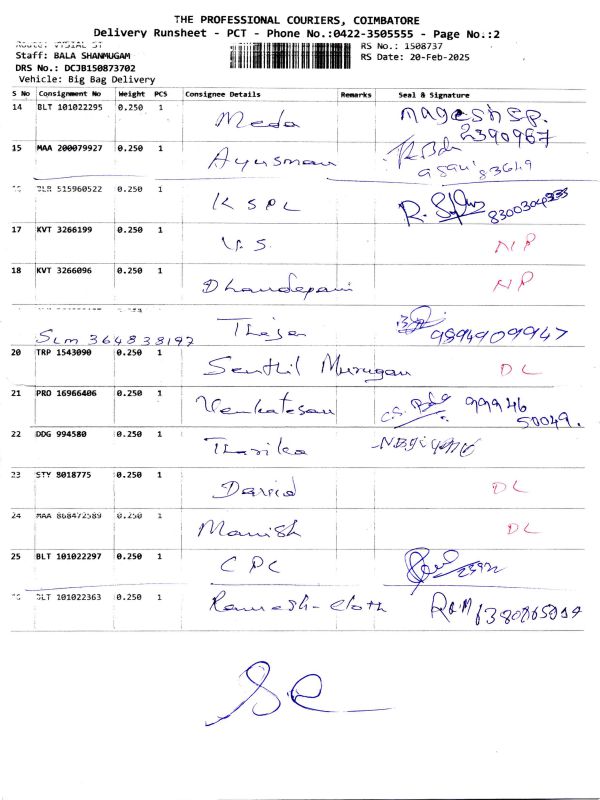 THE PROFESSIONAL COURIERS, COIMBATORE
Delivery Runsheet - PCT - Phone No.:0422-3505555 - Page No.:2
Staff: BALA SHANMUGAM
RS No.: 1508737
DRS No.: DCJB150873702
RS Date: 20-Feb-2025
Vehicle: Big Bag Delivery
S No Consignment No Weight PCS Consignee Details Remarks Seal & Signature
14 BLT 101022295 0.250 1 Meda magesh sp.
2390967
15 MAA 200079927 0.250 1 Ayusman
83619
515960522 0.250 1 KSPL R.
17 KVT 3266199 0.250 1 V.S. NP
18 KVT 3266096 0.250 1 Dhandapani NP
Slm 364838192 9894909947
20 TRP 1543090 0.250 1 Senthil Murugan DL
21 PRO 16966406 0.250 1 Venkatesan 99946
50049.
22 DDG 994580 0.250 1 Tharika
23 STY 8018775 0.250 1 David DL
24 MAA 868472589 0.250 1 Manish DL
25 BLT 101022297 0.250 1 CPC
BLT 101022363 0.250 1 Ramesh-cloth